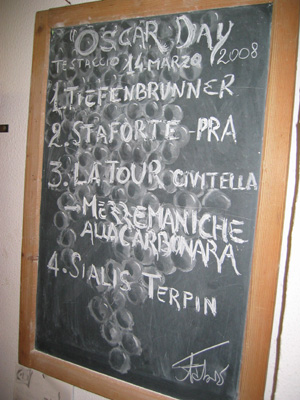 "OSCAR DAY
TESTACCIO 14 MARZO 2008
1. TIEFENBRUNNER
2. STAFORTE - PRA
3. LATOUR CIVITELLA
- MEZZEMANICHE
ALLA CARBONARA
4. SIALIS TERPIN